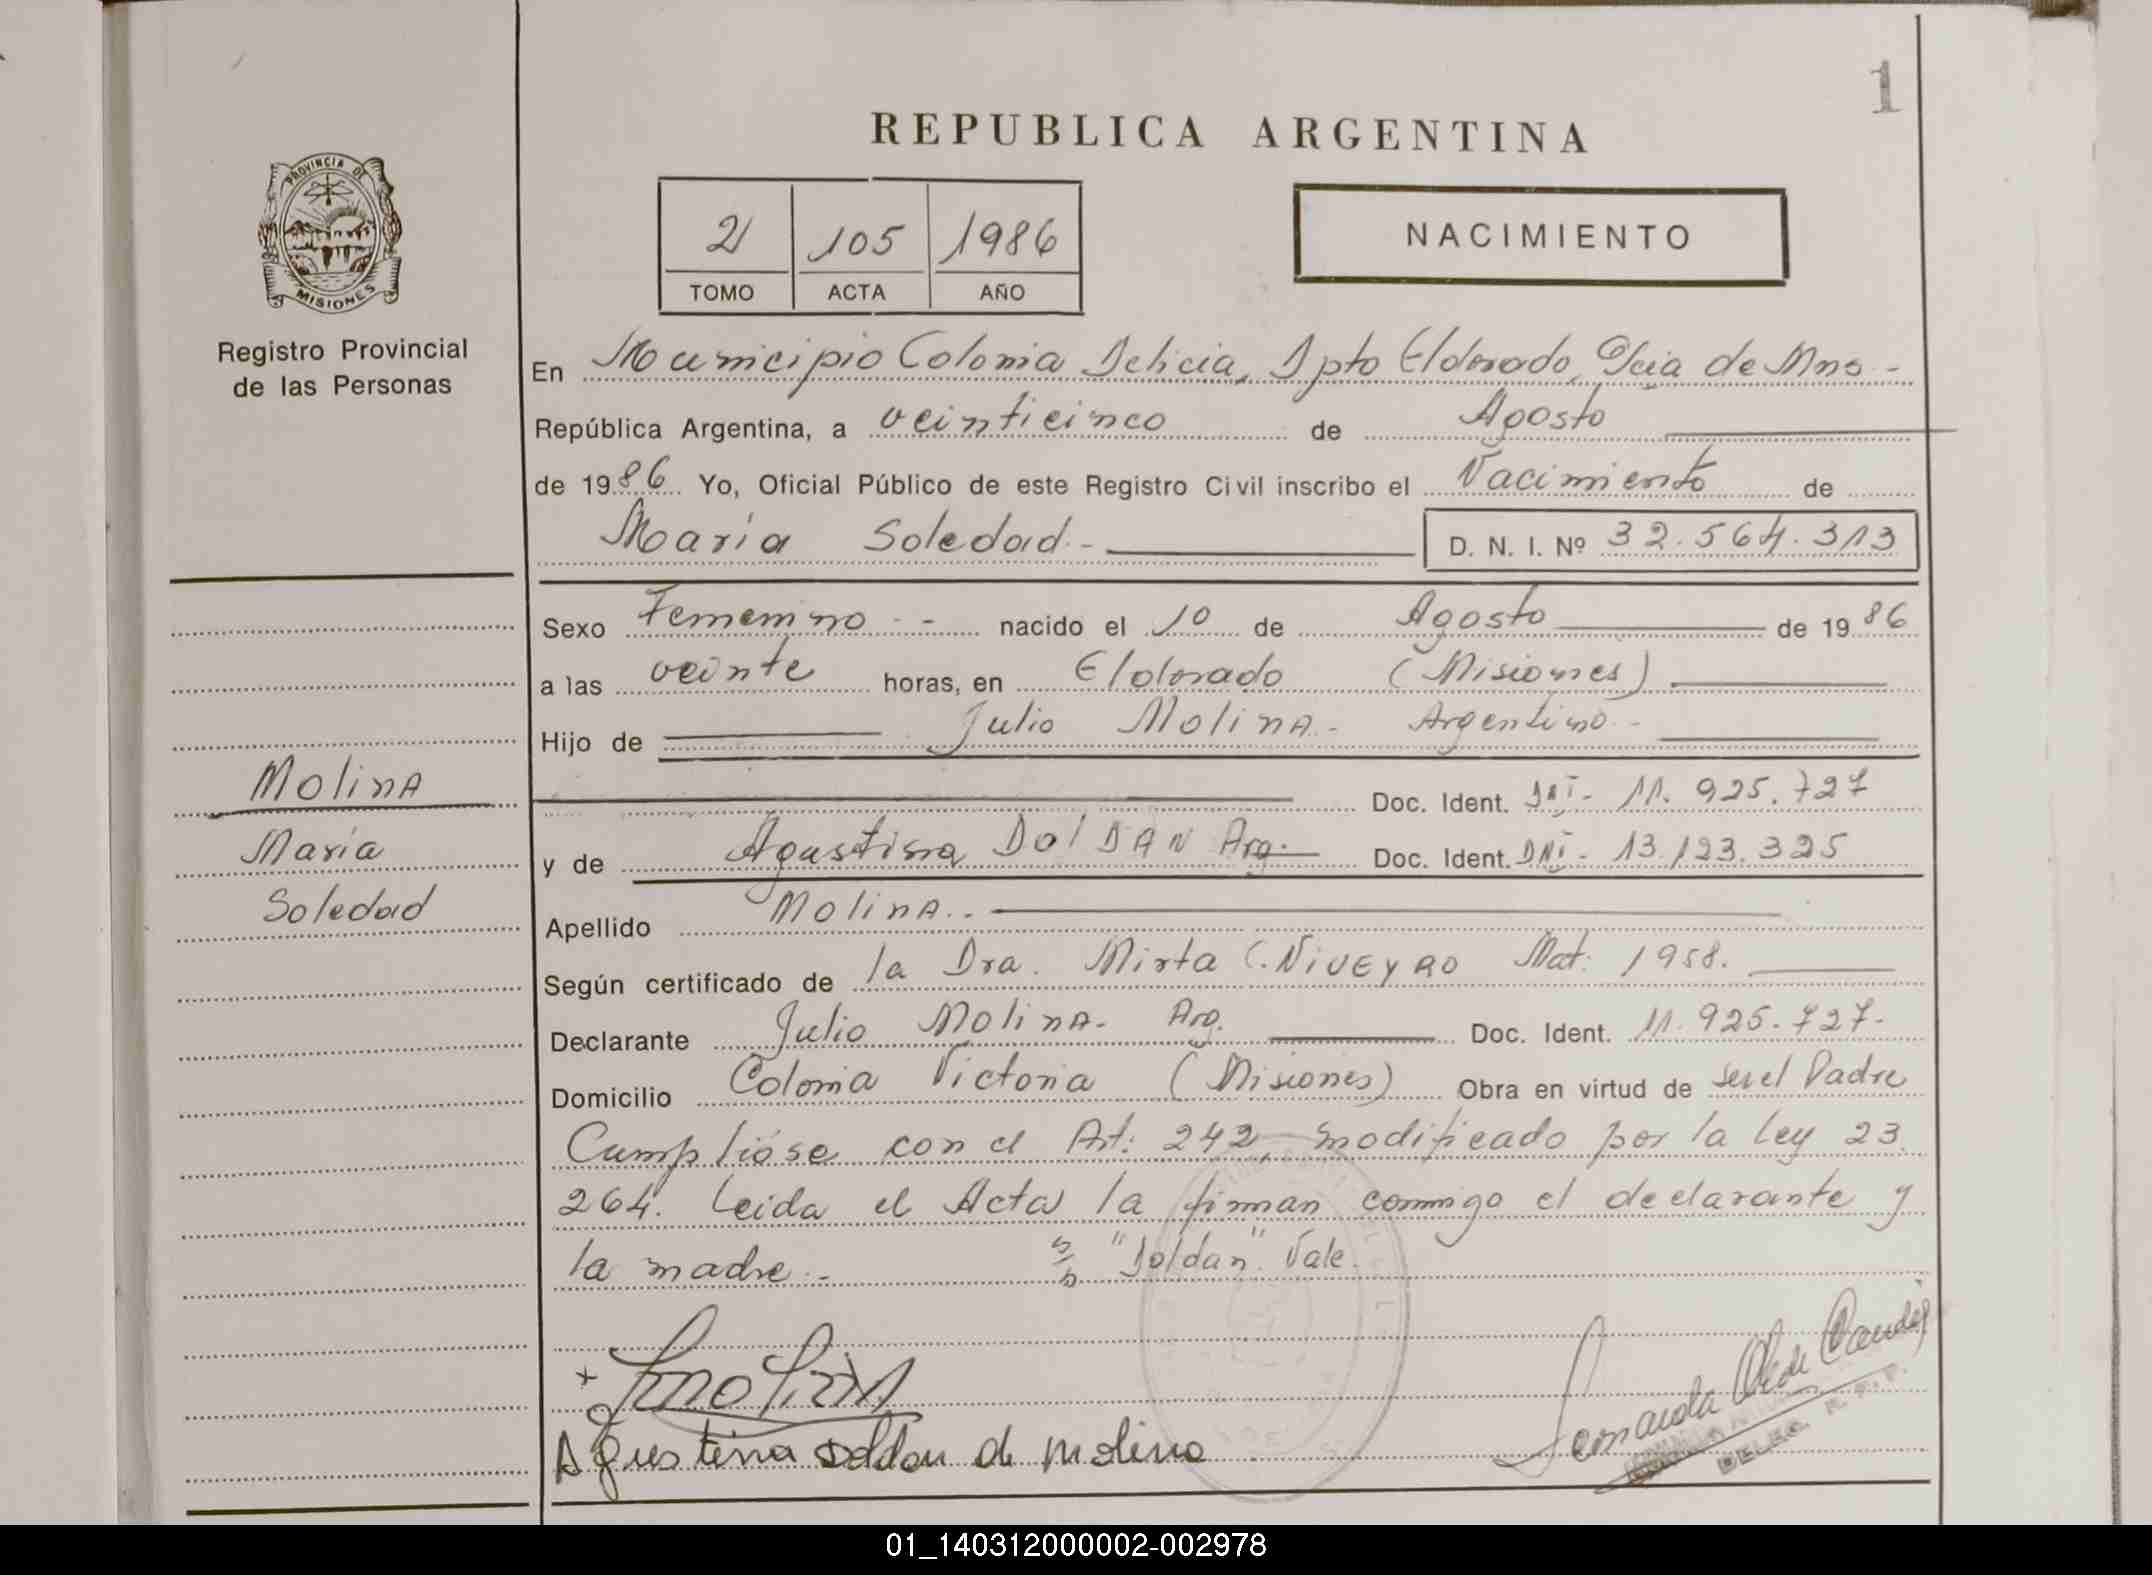 1
REPUBLICA ARGENTINA
PROVINCIA DE
MISIONES
Registro Provincial
de las Personas
2 105 1986
TOMO ACTA AÑO
NACIMIENTO
En Municipio Colonia Delicia, Dpto Eldorado, Pcia de Mnes -
República Argentina, a veinticinco de Agosto
de 1986 Yo, Oficial Público de este Registro Civil inscribo el Nacimiento de
María Soledad.- D. N. I. Nº 32.564.313
Sexo Femenino - - nacido el 10 de Agosto de 1986
a las veinte horas, en Eldorado (Misiones)
Hijo de Julio MolinA.- Argentino.-
Doc. Ident. DNI- 11.925.727
y de Agustina DolDAN Arg.- Doc. Ident. DNI- 13.123.325
Apellido MolinA.-
Según certificado de la Dra. Mirta C. NiVEyRO Mat: 1958.
Declarante Julio MolinA- Arg. Doc. Ident. 11.925.727-
Domicilio Colonia Victoria (Misiones) Obra en virtud de ser el Padre
Cumplióse con el Art: 242, modificado por la Ley 23.
264. Leida el Acta la firman conmigo el declarante y
la madre.- s/b "Doldan" Vale.
MolinA
María
Soledad
+ JmoliNA
Agustina doldan de molina
DELEG. R. P. P.
01_140312000002-002978